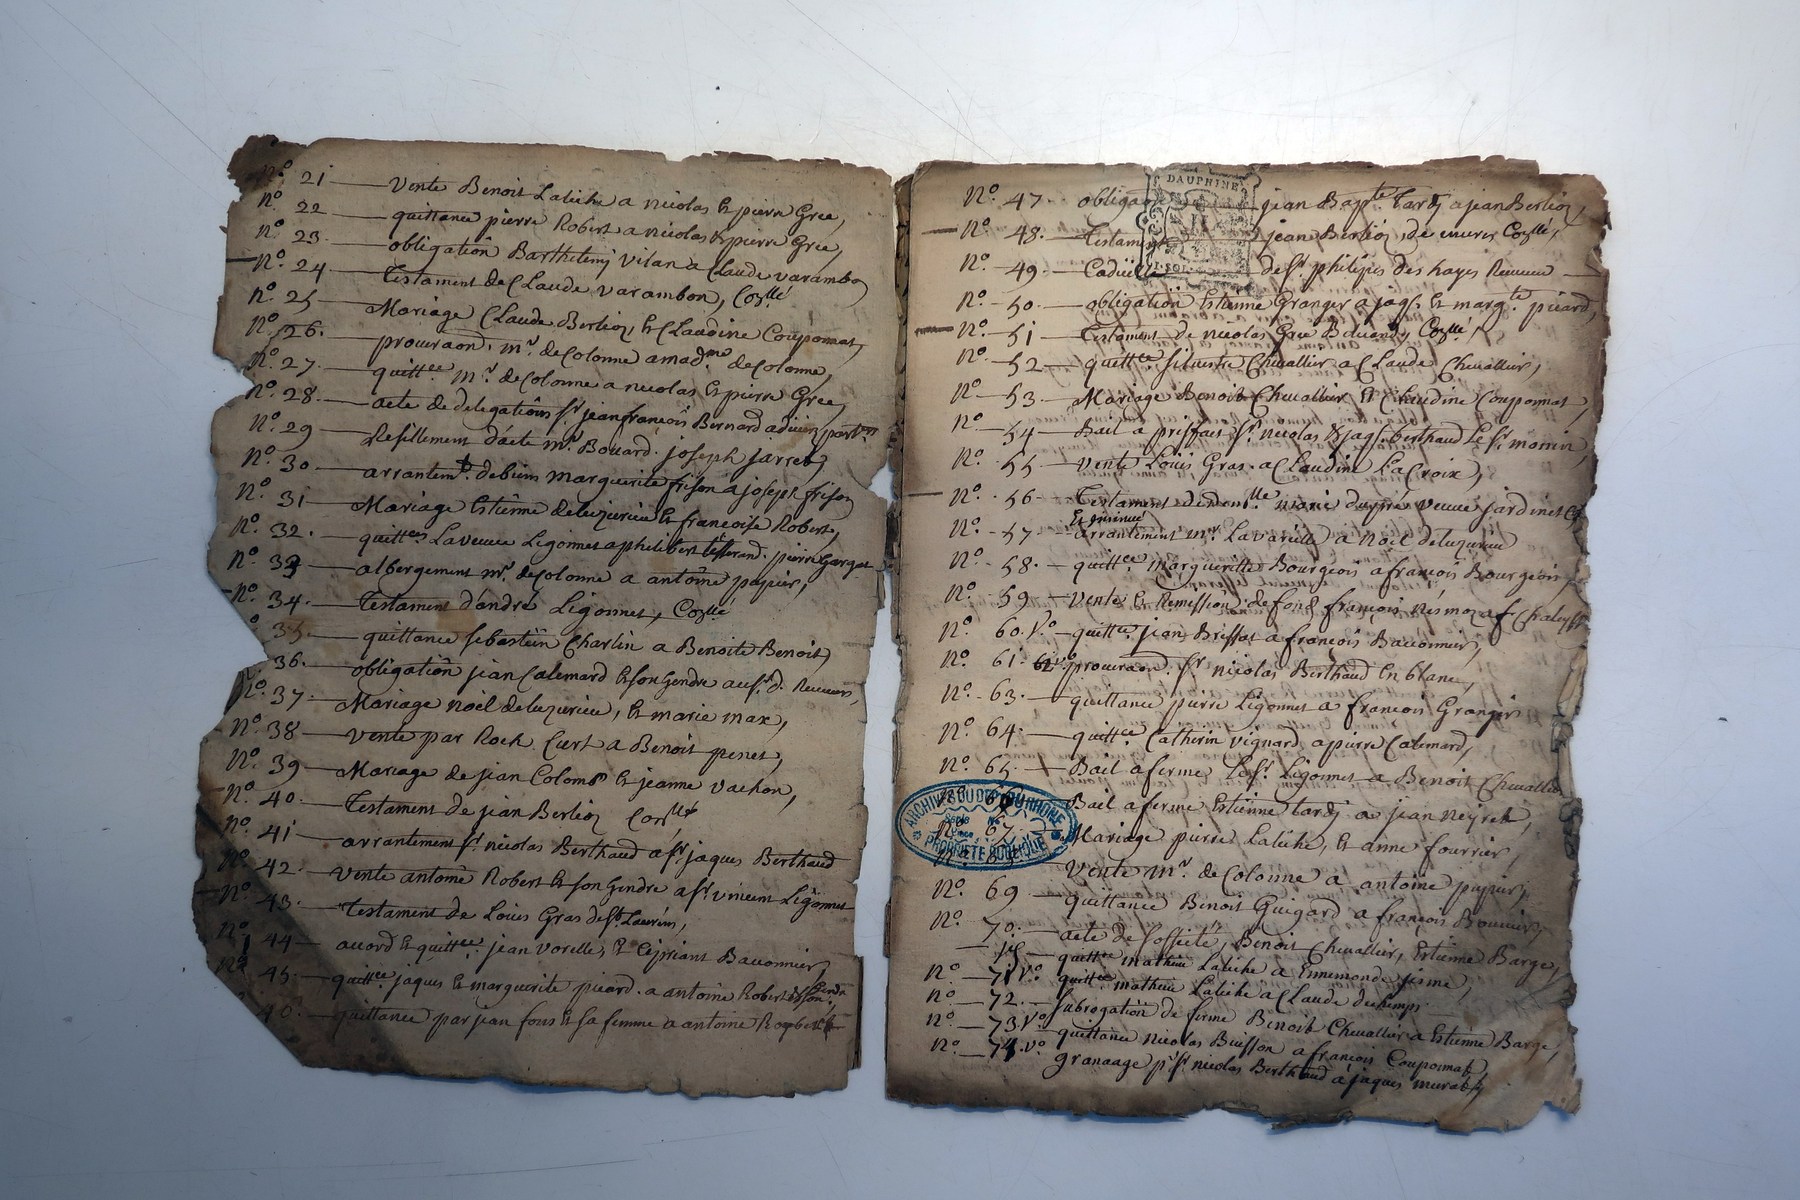 N.º 21 — Vente Benoit Latiche a nicolas Et pierre Grée,
N.º 22 — quittance pierre Robert a nicolas & pierre Grée,
N.º 23 — obligation Barthelemy vilan a Claude varambon
N.º 24 — Testament de Claude varambon, Coztté
N.º 25 — Mariage Claude Berlioz, Et Claudine Couponnat,
N.º 26. — procuraon. mr. de Colonne a mad.me de Colonne,
N.º 27. — quittce mr. de Colonne a nicolas Et pierre Grée,
N.º 28. — acte de delegation sr. jean françois Bernard
N.º 29 — d'acte mr. Bouard. joseph jarret,
N.º 30 — arrantemt. de biens marguerite frison a joseph frison
N.º 31 — Mariage Estienne deluzurieu Et francoise Robert,
N.º 32. — quittces La veuve Ligonnet a philibert pierre
N.º 33 — albergement mr. de Colonne a antoine papier,
N.º 34. — Testament d'andré Ligonnet, Coztté
35. — quittance sebastien Charlin a Benoite Benoit,
36. — obligation jean Calemard Et son Gendre
N.º 37. — Mariage noël deluzurieu, Et marie max,
N.º 38 — vente par Roch Curt a Benoit penet,
N.º 39 — Mariage de jean Colomb Et jeanne vachon,
N.º 40. — Testament de jean Berlioz
N.º 41 — arrantement sr. nicolas Berthaud a sr. jaques Berthaud
N.º 42. — vente antoine Robert Et son Gendre a sr. vincent Ligonnet
N.º 43. — Testament de Loüis Gras de St. Laurens,
N.º 44 — acord Et quittce. jean vorelle, Et Cipriant Bauonnier,
N.º 45. — quittce jaques Et marguerite picard. a antoine Robert & son Gendre
46. — quittance par jean fons Et sa femme a antoine Robert
DAUPHINE
N.º 47. obligaon jean Bapte. tardy a jean Berlioz,
N.º 48. — Testament jean Berlioz, de mures Coztté,
N.º 49. — de Sr. des hayes
N.º 50. — obligation Estienne Granger a jaqs. Et margte. picard,
N.º 51 — Testament de nicolas Grée Coztté,
N.º 52 — quittce silvestre Chevallier a Claude Chevallier,
N.º 53. — Mariage Benoit Chevallier Et Claudine Couponnat,
N.º 54 — Bail a priffait Sr. nicolas & jaqs. Berthaud Le Sr. morrin,
N.º 55 — vente Loüis Gras. a Claudine La Croix,
N.º 56 — Testament de demlle marie dupré veuve jardinet
N.º 57. — arrantement mr. Lavareille a Noël deluzurieu
N.º 58. — quittce Marguerite Bourgeois a françois Bourgeois,
N.º 59. — Vente Et Remission de fond françois a f.
N.º 60. Vº — quittce jean Brissat a françois Bauonnier,
N.º 61. 62. Vº procuraon. Sr. nicolas Berthaud En blanc,
N.º 63. — quittance pierre Ligonnet a françois Granger
N.º 64. — quittce. Catherin vignard a pierre Calemard,
N.º 65. — Bail a ferme Le Sr. Ligonnet a Benoit Chevallier
N.º 66 Bail a ferme Estienne tardy a jean neyret,
N.º 67. Mariage pierre Latiche, Et anne fourrier,
Vente mr. de Colonne a antoine papier,
N.º 69 — quittance Benoit Guigard a françois Bouvier,
N.º 70. — acte de Societé, Benoit Chevallier, Estienne Barge,
— quittce mathieu Latiche a Ennemonde
N.º 71 Vº. quittce. mathieu Latiche a Claude dechamps
N.º 72. — subrogation de ferme Benoit Chevallier a Estienne Barge,
N.º 73. Vº quittance nicolas Buisson a françois Couponnat,
N.º 74. Vº. granaage pr. sr nicolas Berthaud a jaques murat
ARCHIVES DU DÉPT DU RHÔNE
Série
No.
Pièce
PROPRIÉTÉ PUBLIQUE